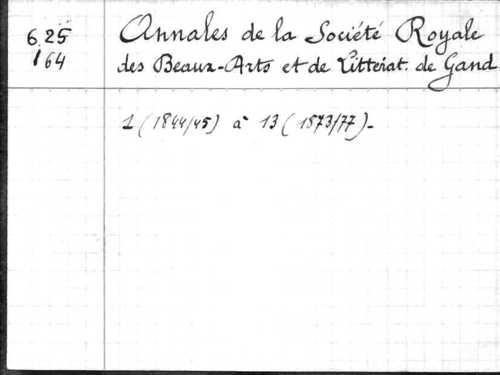 6 25
164
Annales de la Société Royale
des Beaux-Arts et de Litterat. de Gand
1 (1844/45) à 13 (1873/77)-